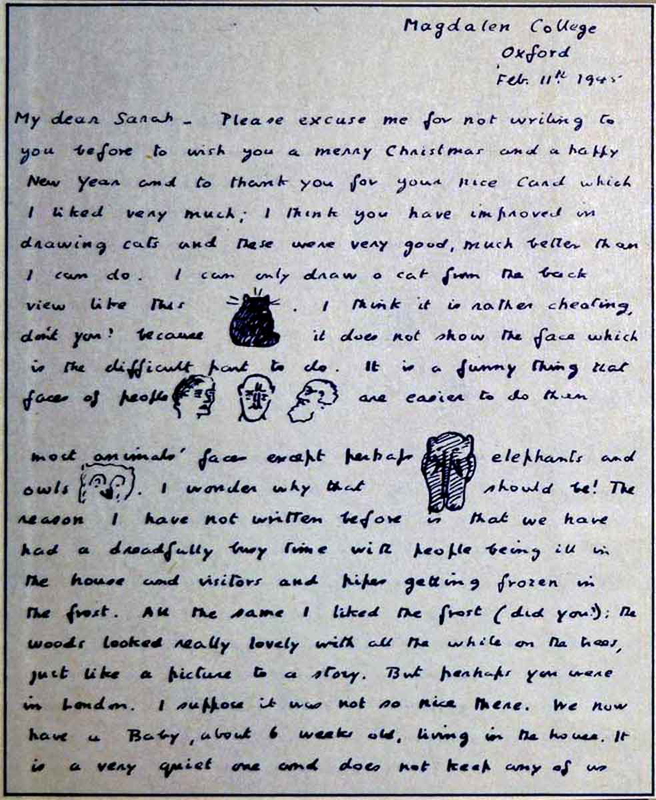 Magdalen College
Oxford
Feb. 11th 1945
My dear Sarah – Please excuse me for not writing to
you before to wish you a merry Christmas and a happy
New Year and to thank you for your nice card which
I liked very much; I think you have improved in
drawing cats and these were very good, much better than
I can do. I can only draw a cat from the back
view like this . I think it is rather cheating,
don't you? because it does not show the face which
is the difficult part to do. It is a funny thing that
faces of people are easier to do than
most animals' faces except perhaps elephants and
owls . I wonder why that should be! The
reason I have not written before is that we have
had a dreadfully busy time with people being ill in
the house and visitors and pipes getting frozen in
the frost. All the same I liked the frost (did you?): the
woods looked really lovely with all the white on the trees,
just like a picture to a story. But perhaps you were
in London. I suppose it was not so nice there. We now
have a Baby, about 6 weeks old, living in the house. It
is a very quiet one and does not keep any of us